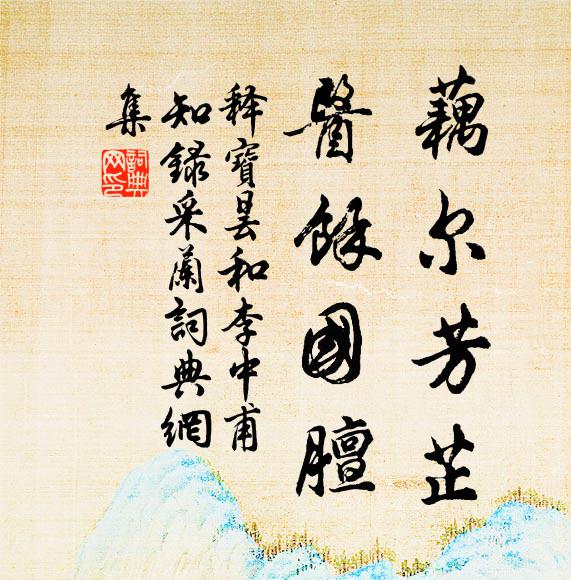 藕尔芳芷
醫餘國膻
释寶昙和李中甫
知録采蘭詞典網
集
詞典
网印